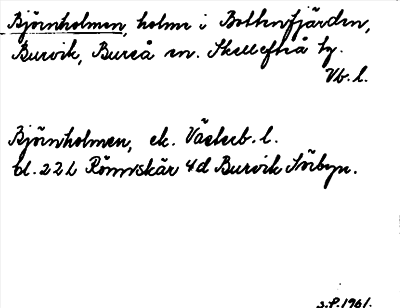 Björnholmen, holme i Bottenfjärden,
Burvik, Bureå sn. Skellefteå ty.
Vb. l.
Björnholmen, ek. Västerb. l.
bl. 22 L Rönnskär 4d Burvik Sörbyn.
s.P. 1961.